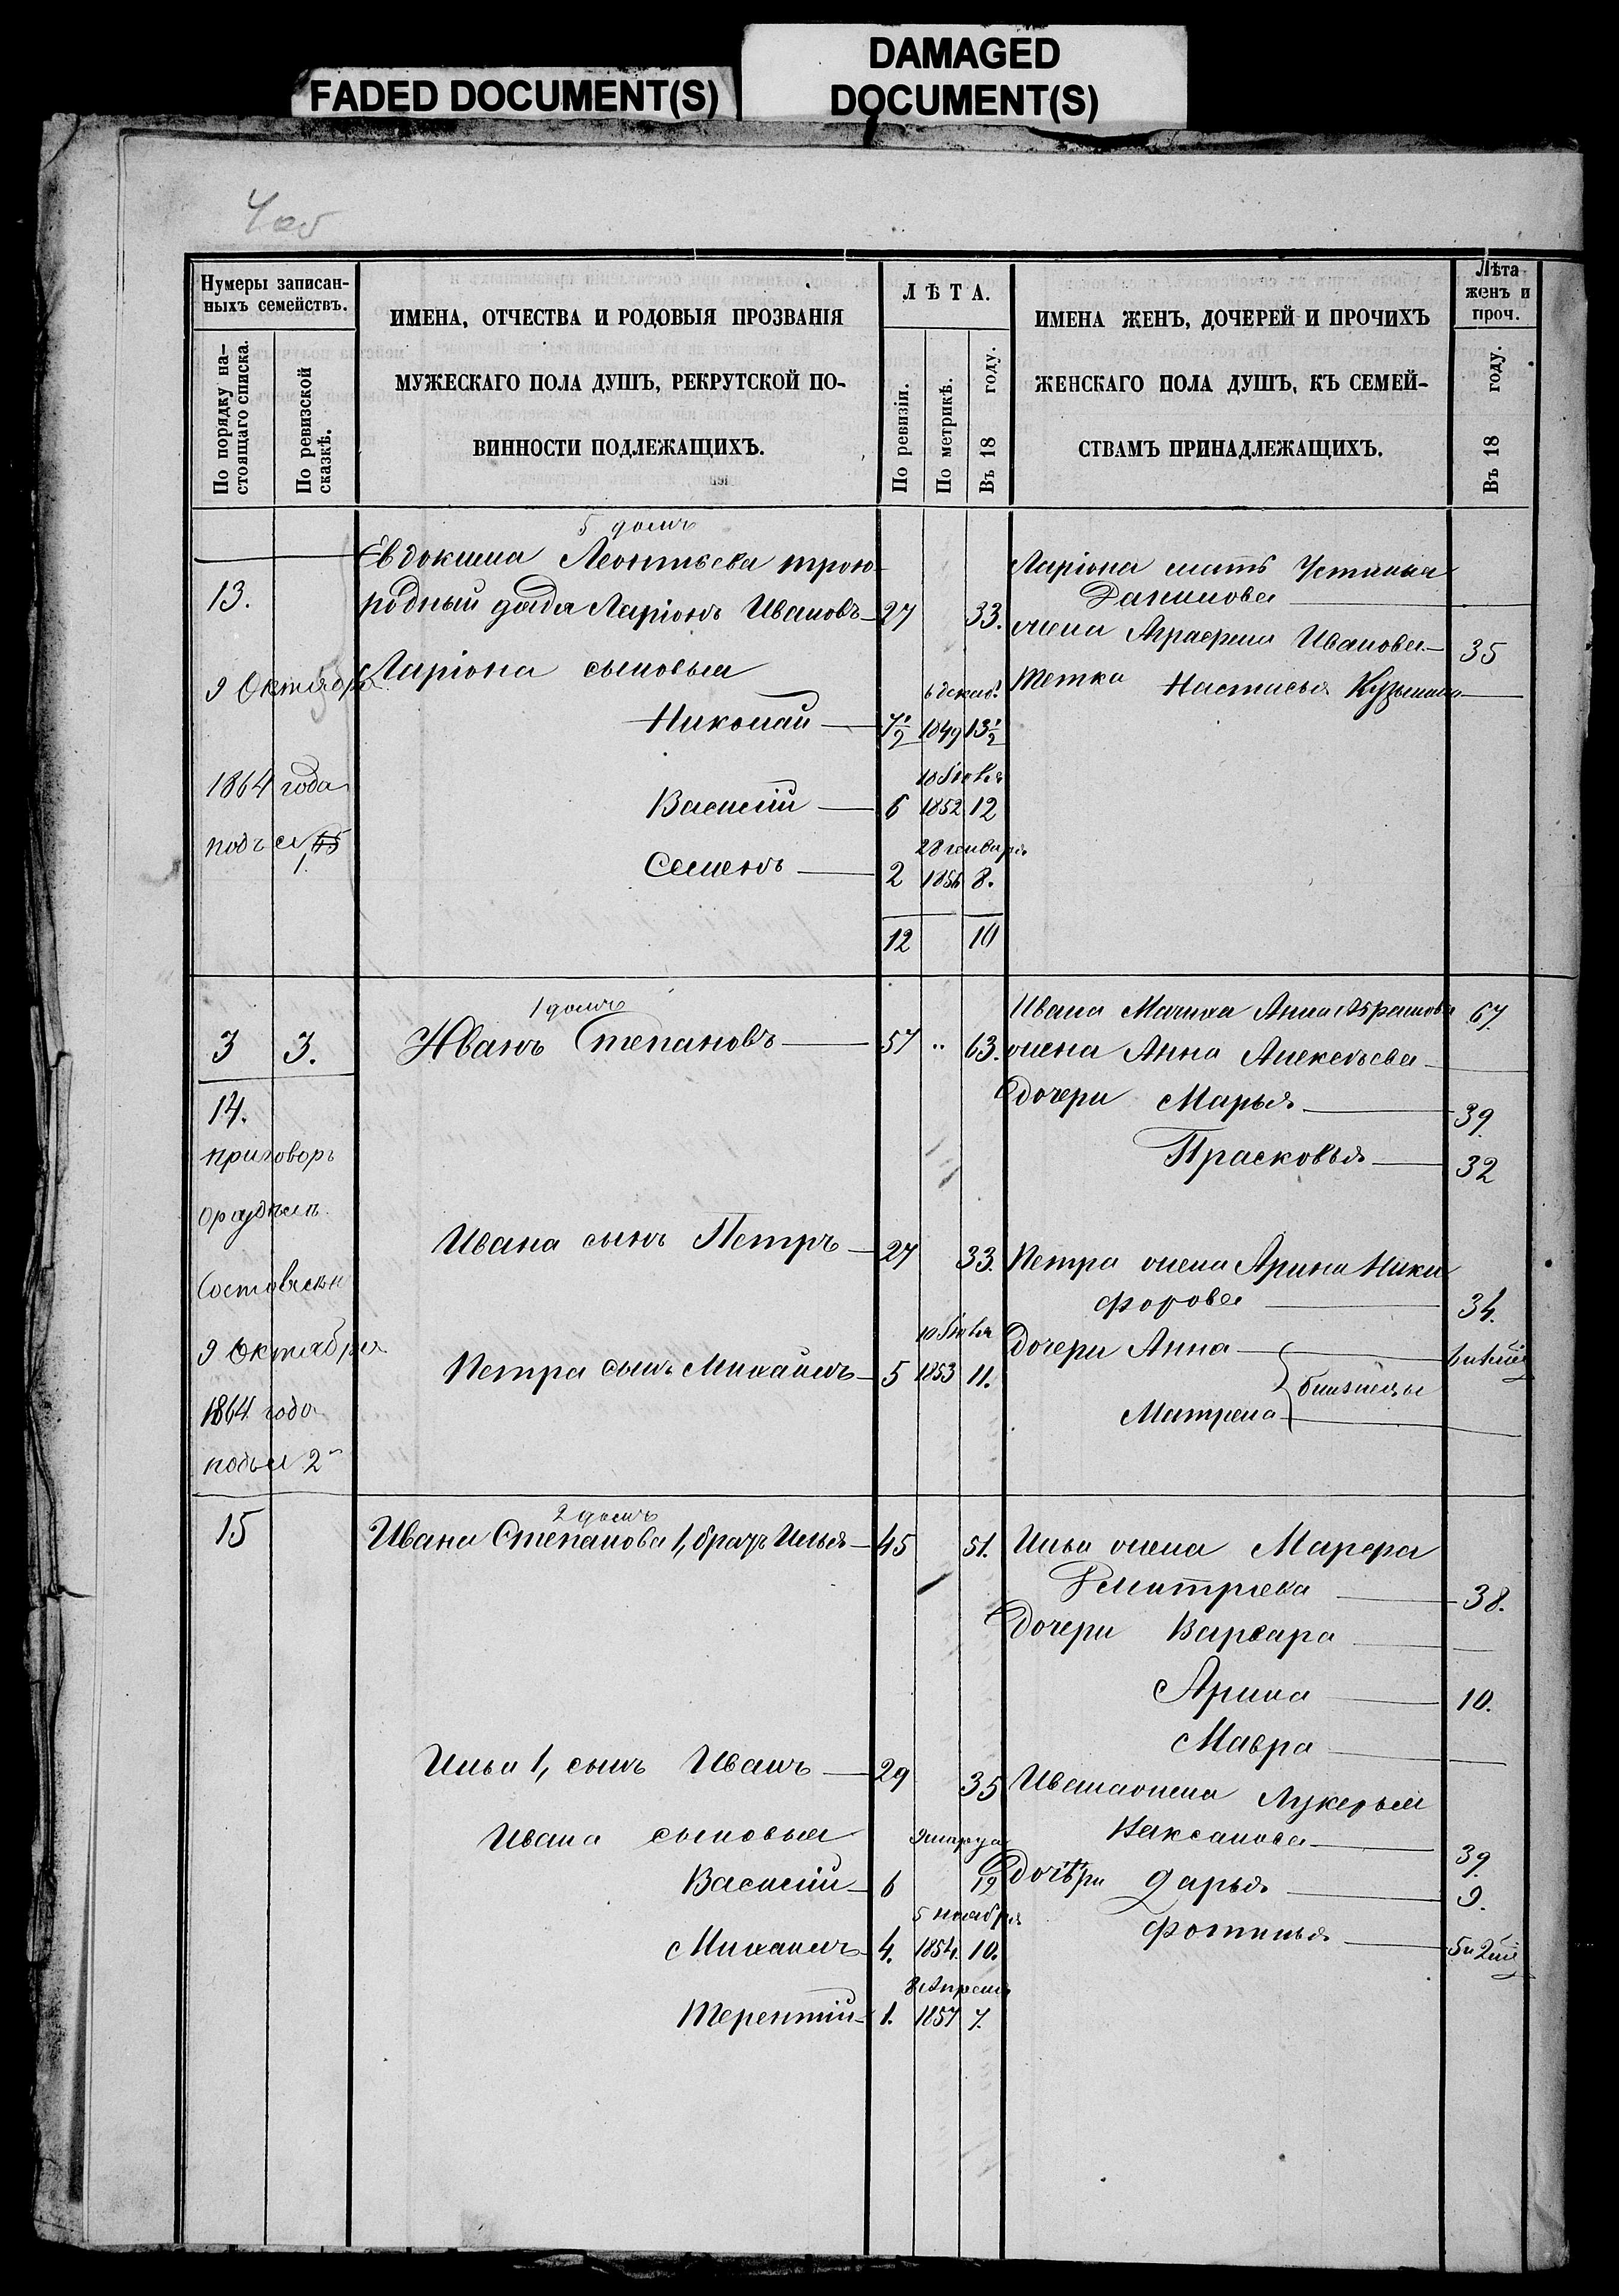 FADED DOCUMENT(S)
DAMAGED
DOCUMENT(S)
4 об
Нумеры записан-
ныхъ семействъ.
По порядку на-
стоящаго списка.
По ревизской
сказкѣ.
ИМЕНА, ОТЧЕСТВА И РОДОВЫЯ ПРОЗВАНІЯ
МУЖЕСКАГО ПОЛА ДУШЪ, РЕКРУТСКОЙ ПО-
ВИННОСТИ ПОДЛЕЖАЩИХЪ.
ЛѢТА.
По ревизіи.
По метрикѣ.
Въ 18 году.
ИМЕНА ЖЕНЪ, ДОЧЕРЕЙ И ПРОЧИХЪ
ЖЕНСКАГО ПОЛА ДУШЪ, КЪ СЕМЕЙ-
СТВАМЪ ПРИНАДЛЕЖАЩИХЪ.
Лѣта
женъ и
проч.
Въ 18 году.
5 домъ
Евдокима Леонтьева трою-
13. родный дядя Ларіонъ Ивановъ 27 33.
Ларіона мать Устинья
Данилова
жена Аграфена Иванова 35
9 Октября
Ларіона сыновья
6 декаб.
Тетка Настасья Кузьмина
Николай 7½ 1849 13½
1864 года
10 Генв
Василій 6 1852 12
подъ
28 генваря
Семенъ 2 1856 8.
12 10
1 домъ
3 3. Иванъ Степановъ 57 " 63.
Ивана Мачиха Анна Абрамова 67.
жена Анна Алексѣева
дочери Марья 39.
Прасковья 32
14.
приговоръ
о раздѣлѣ
Составленъ
9 Октября
1864 года
подъ 2
Ивана сынъ Петръ 27 33.
Петра жена Арина Ники
форова 34.
10 Генв
Петра сынъ Михаилъ 5 1853 11.
дочери Анна
близнецы
Матрена
2 домъ
15 Ивана Степанова 1, братъ Илья 45 51.
Ильи жена Марфа
Дмитріева 38.
дочери Варвара
Арина 10.
Мавра
Ильи 1, сынъ Иванъ 29 35
Ивана жена Лукерья
Максанова 39.
Ивана сыновья
Василій 6 12
дочѣри Дарья 9.
5 ноября
Михаилъ 4. 1854. 10.
Фотинья
8 Апреля
Терентій 1. 1857 7.